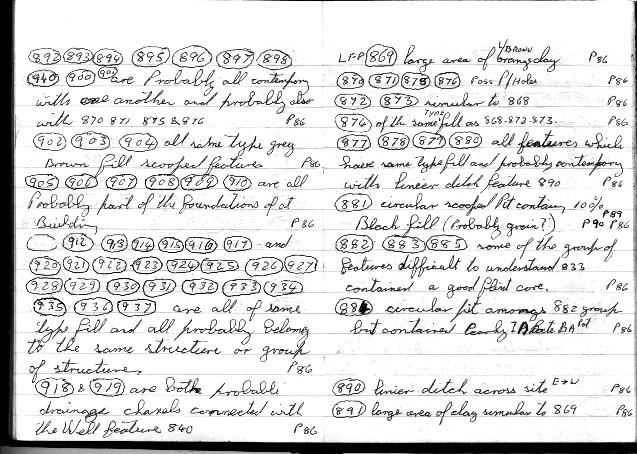 892 893 894 895 896 897 898
940 900 901 are Probably all contempory
with one another and probably also
with 870 871 875 & 876 P86
902 903 904 all same type grey
Brown fill scooped features P86
905 906 907 908 909 910 are all
Probably part of the foundations of at
Building P86
912 913 914 915 916 917 and
920 921 922 923 924 925 926 927
928 929 930 931 932 933 934
935 936 937 are all of same
type fill and all probably belong
to the same structure or group
of structures P86
918 & 919 are both probable
drainage chanels connected with
the Well feature 840 P86
LFP 869 large area of Y/BROWN orange clay P86
870 871 875 876 Poss P/Holes P86
872 873 simular to 868 P86
874 of the same TYPE fill as 868-872-873. P86
877 878 879 880 all features which
have same type fill and probably contempory
with linier ditch feature 890 P86
881 circular scooped Pit contain, 100%
Black fill (Probably grain?) P89 P90 P86
882 883 885 some of the group of
features difficult to understand 833
contained a good flint core. P86
884 circular pit amongs 882 group
but contained Early IA Late BA Pot P86
890 linier ditch across site E→W P86
891 large area of clay simular to 869 P86